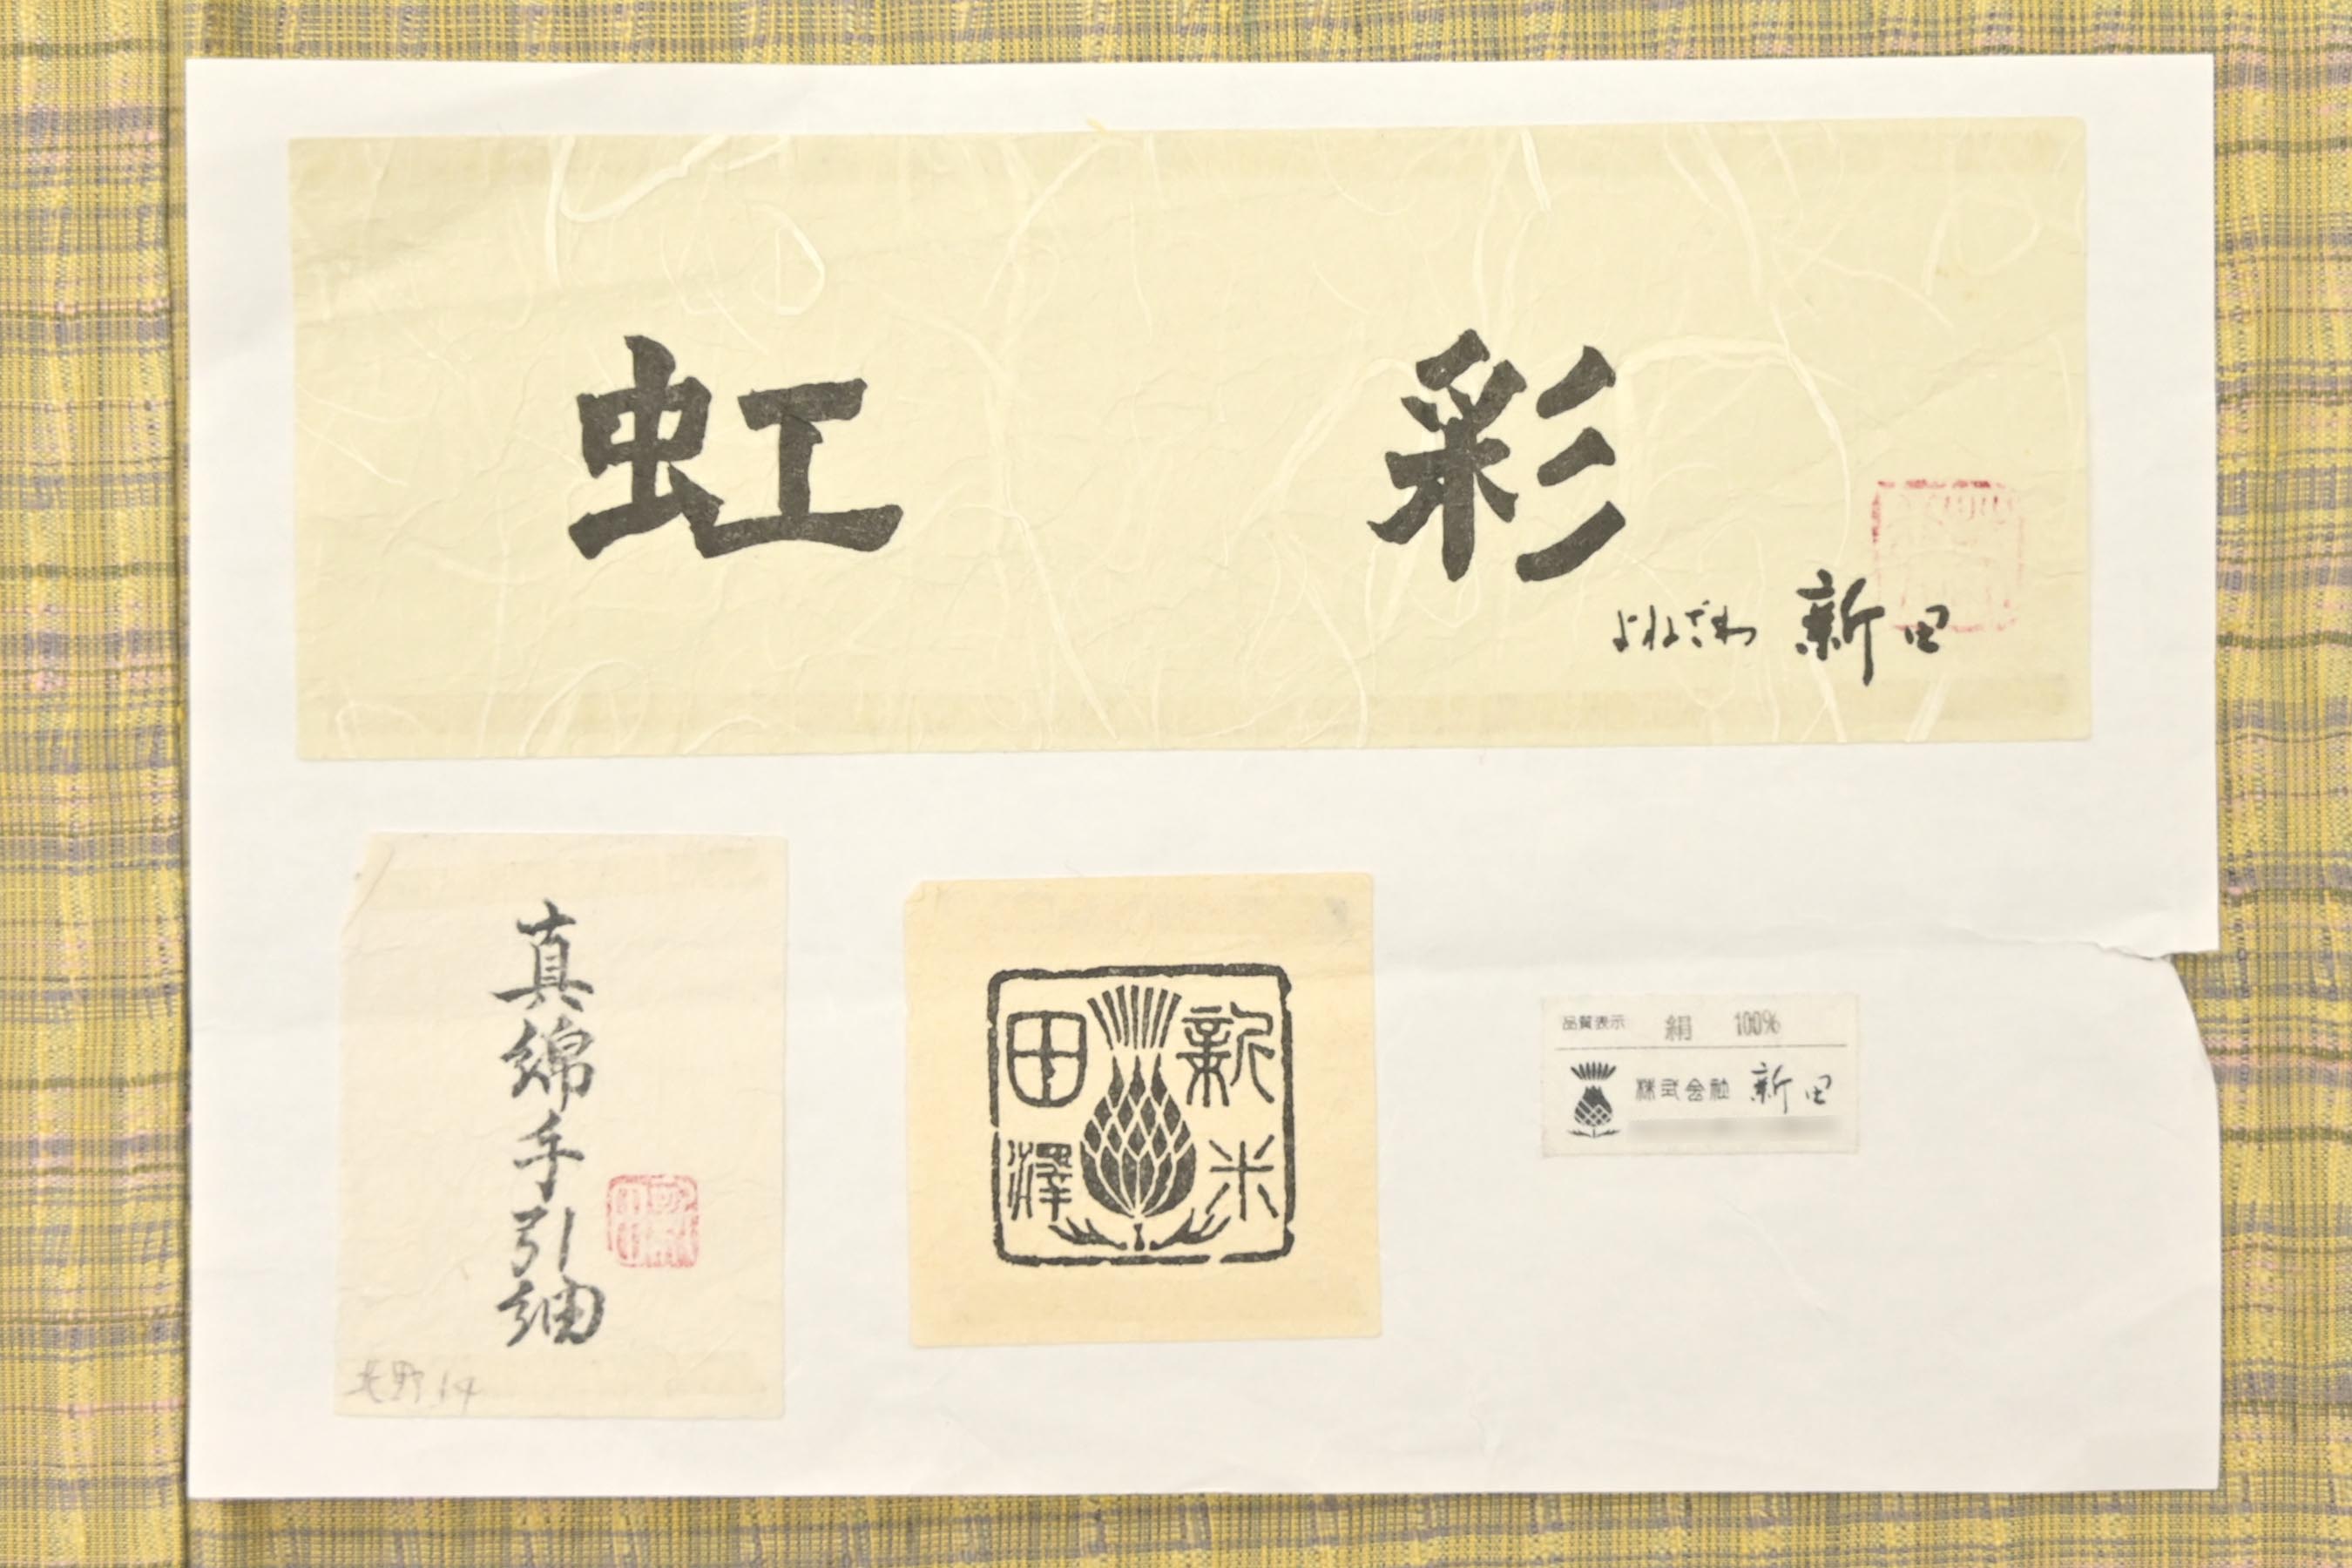 虹彩
よねざわ 新田
真綿手引紬
新田
米澤
品質表示 絹 100%
株式会社 新田